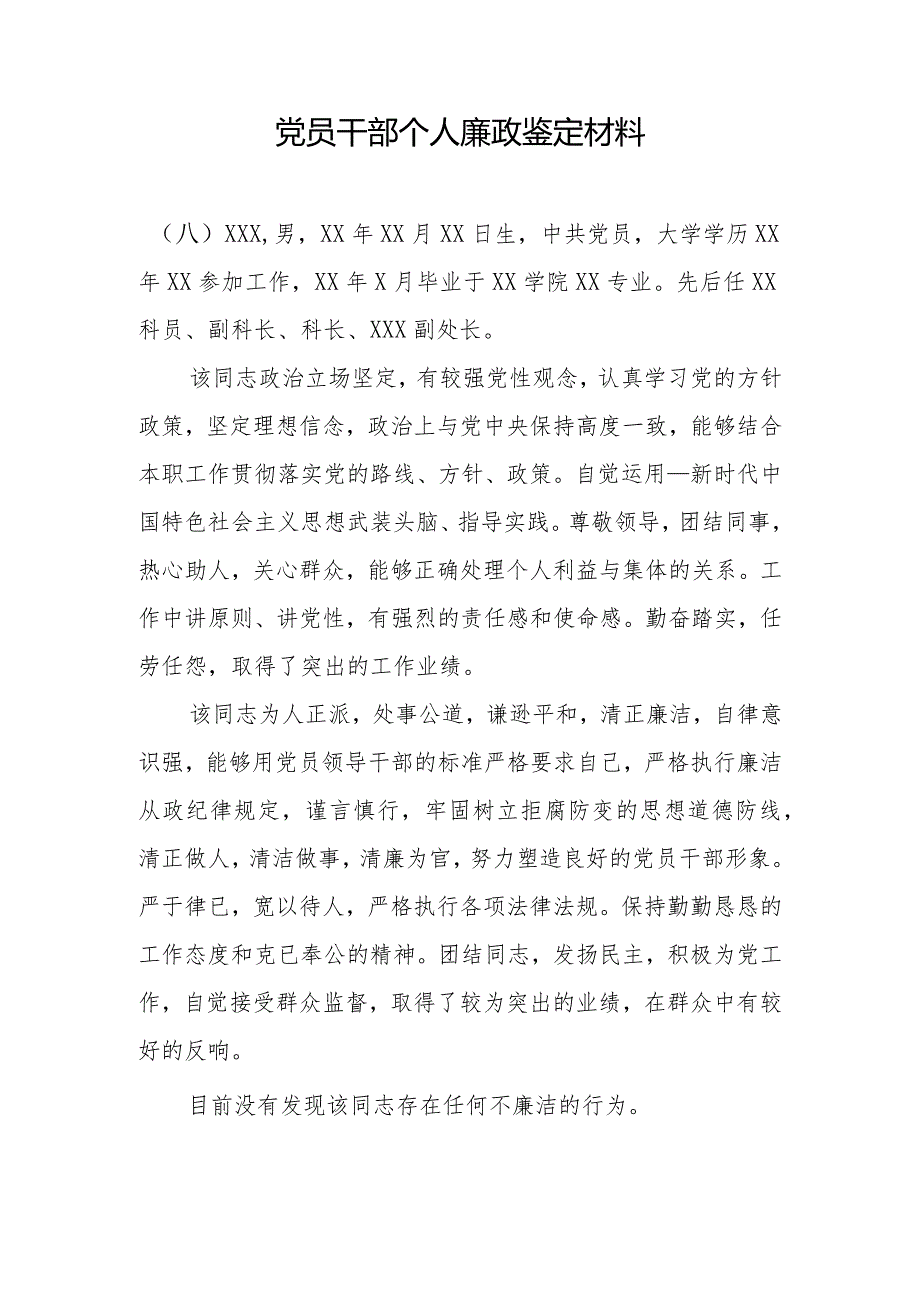 党员干部个人廉政鉴定材料
（八）XXX,男，XX 年 XX 月 XX 日生，中共党员，大学学历 XX
年 XX 参加工作，XX 年 X 月毕业于 XX 学院 XX 专业。先后任 XX
科员、副科长、科长、XXX 副处长。
该同志政治立场坚定，有较强党性观念，认真学习党的方针
政策，坚定理想信念，政治上与党中央保持高度一致，能够结合
本职工作贯彻落实党的路线、方针、政策。自觉运用—新时代中
国特色社会主义思想武装头脑、指导实践。尊敬领导，团结同事，
热心助人，关心群众，能够正确处理个人利益与集体的关系。工
作中讲原则、讲党性，有强烈的责任感和使命感。勤奋踏实，任
劳任怨，取得了突出的工作业绩。
该同志为人正派，处事公道，谦逊平和，清正廉洁，自律意
识强，能够用党员领导干部的标准严格要求自己，严格执行廉洁
从政纪律规定，谨言慎行，牢固树立拒腐防变的思想道德防线，
清正做人，清洁做事，清廉为官，努力塑造良好的党员干部形象。
严于律已，宽以待人，严格执行各项法律法规。保持勤勤恳恳的
工作态度和克已奉公的精神。团结同志，发扬民主，积极为党工
作，自觉接受群众监督，取得了较为突出的业绩，在群众中有较
好的反响。
目前没有发现该同志存在任何不廉洁的行为。